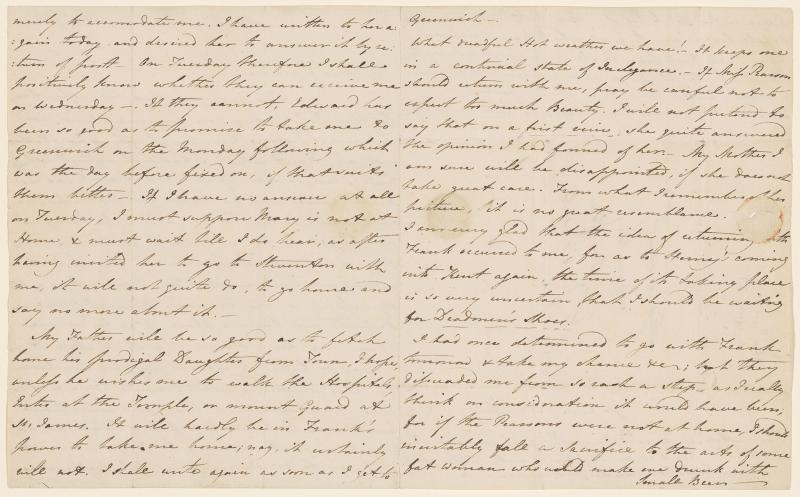 merely to accomodate me. I have written to her a:
:gain today, and desired her to answer it by re:
:turn of post — On Tuesday therefore I shall
positively know whether they can receive me
on Wednesday —. If they cannot, Edward has
been so good as to promise to take me to
Greenwich on the Monday following which
was the day before fixed on, if that suits
them better — If I have no answer at all
on Tuesday, I must suppose Mary is not at
Home, & must wait till I do hear; as after
having invited her to go to Steventon with
me, it will not quite do, to go home and
say no more about it. —
My Father will be so good as to fetch
home his prodigal Daughter from Town, I hope,
unless he wishes me to walk the Hospitals,
Enter at the Temple, or mount Guard at
St James. It will hardly be in Frank's
power to take me home; nay, it certainly
will not. I shall write again as soon as I get to
Greenwich —.
What dreadful Hot weather we have! — It keeps one
in a continual state of Inelegance. — If Miss Pearson
should return with me, pray be careful not to
expect too much Beauty. I will not pretend to
say that on a first view, she quite answered
the opinion I had formed of her. — My Mother I
am sure will be disappointed, if she does not
take great care. From what I remember of her
picture, it is no great resemblance.
I am very glad that the idea of returning with
Frank occurred to me, for as to Henry's coming
into Kent again, the time of its taking place
is so very uncertain that I should be waiting
for Deadmen's Shoes.
I had once determined to go with Frank
tomorrow & take my chance &c; but they
dissuaded me from so rash a step, as I really
think on consideration it would have been;
for if the Pearsons were not at home, I should
inevitably fall a Sacrifice to the arts of some
fat woman who would make me drunk with
Small Beer —